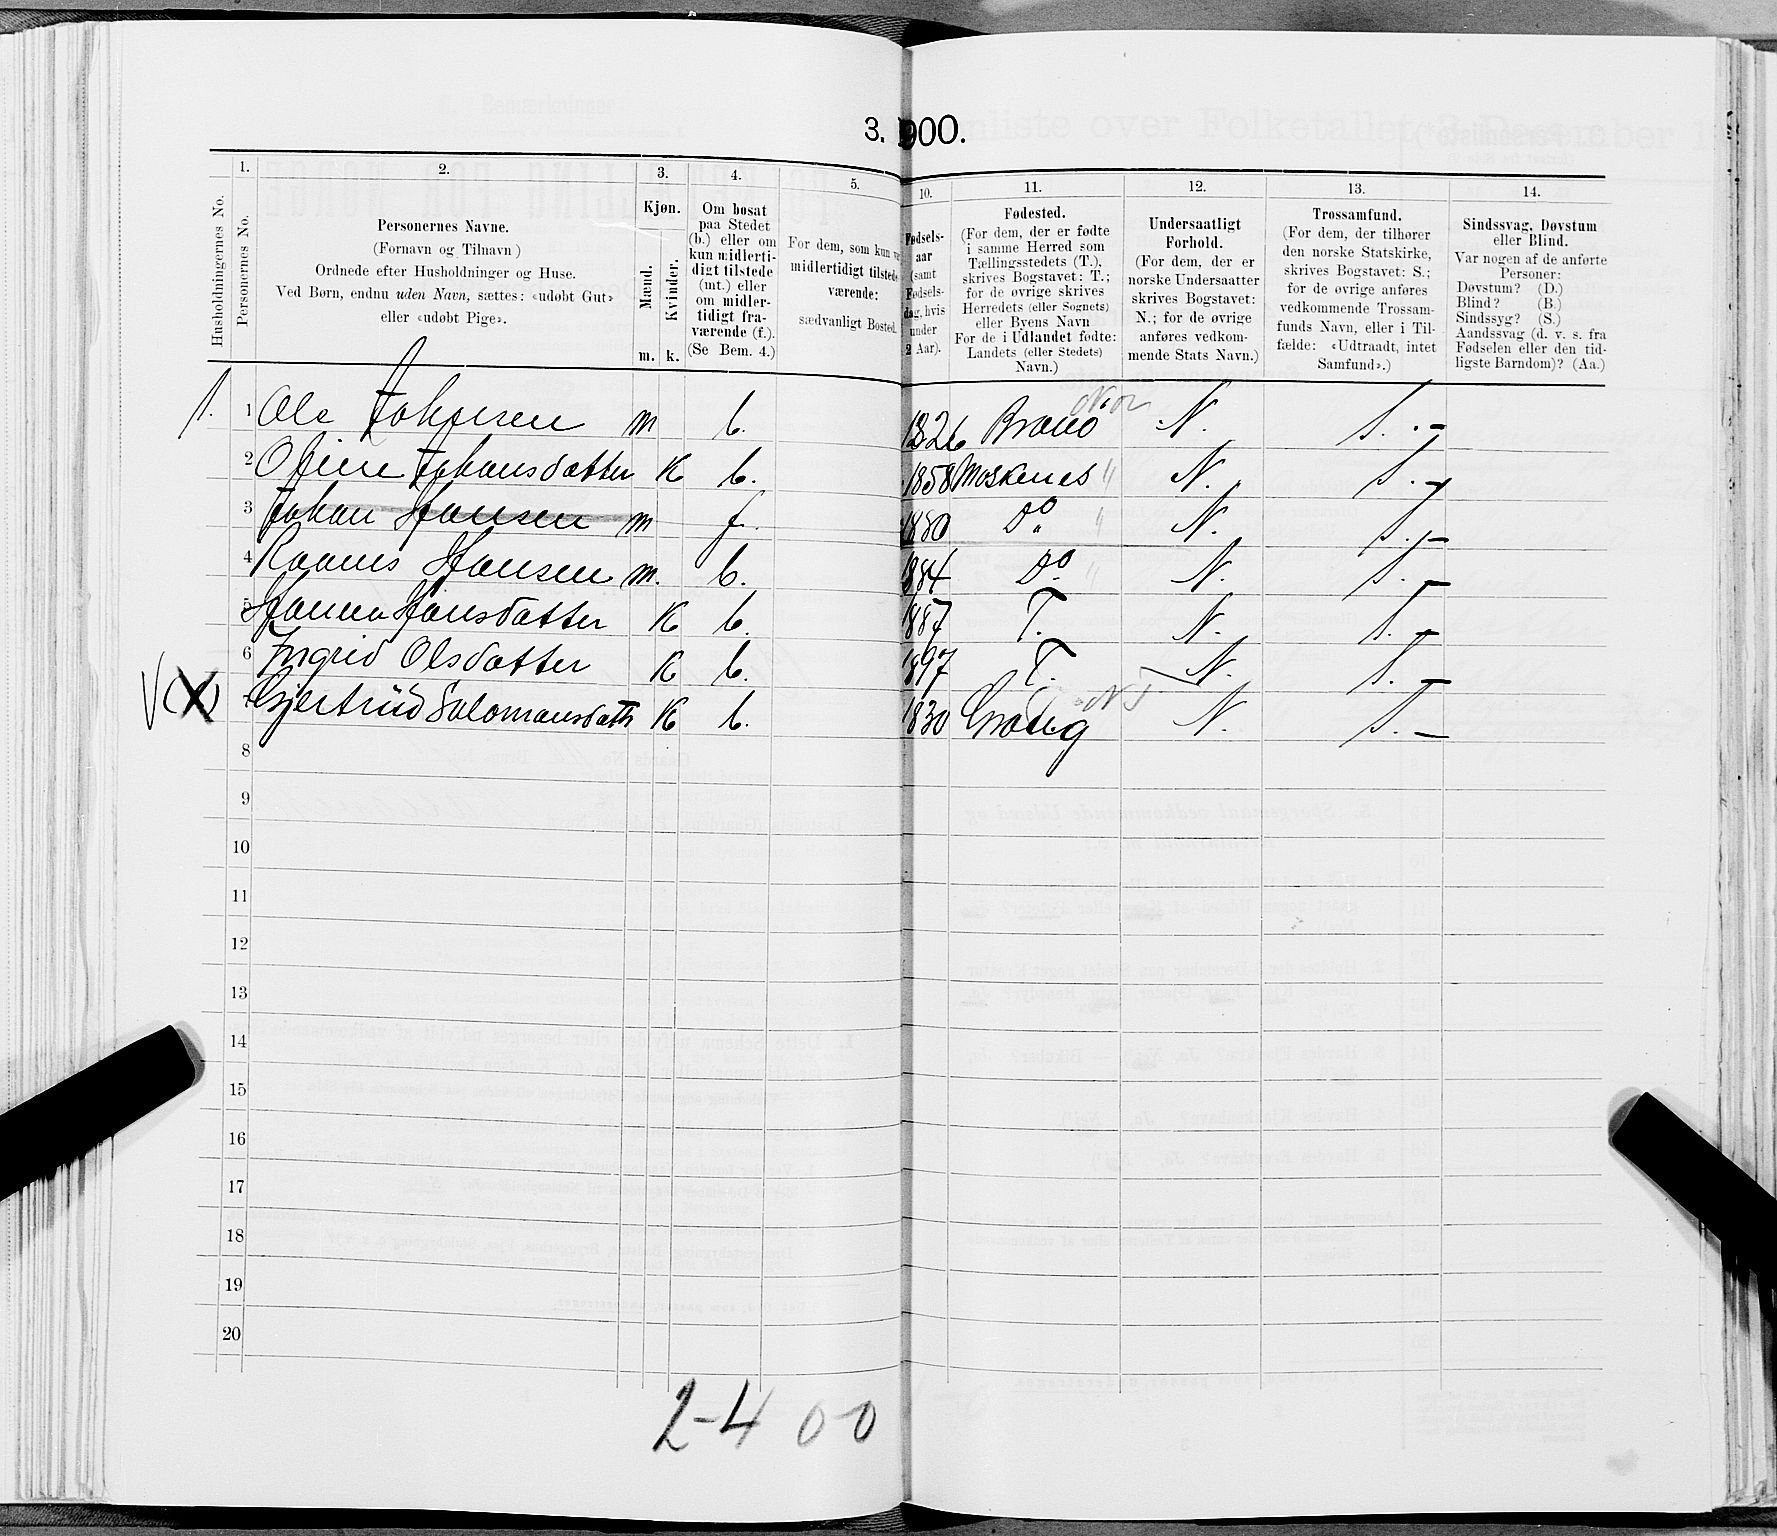 3. 900.
1. 2. 3. 4. 5. 10. 11. 12. 13. 14.
Husholdningernes No.
Personernes No.
Personernes Navne.
(Fornavn og Tilnavn)
Ordnede efter Husholdninger og Huse.
Ved Børn, endnu uden Navn, sættes: «udøbt Gut»
eller «udøbt Pige».
Kjøn.
Mænd.
Kvinder.
m. k.
Om bosat
paa Stedet
(b.) eller om
kun midlerti-
digt tilstede
(mt.) eller
om midler-
tidigt fra-
værende (f.).
(Se Bem. 4.)
For dem, som kun
midlertidigt tilstede
værende:
sædvanligt Bosted.
Fødsels-
aar
(samt
Fødsels-
dag, hvis
under
2 Aar).
Fødested.
(For dem, der er fødte
i samme Herred som
Tællingsstedets (T.),
skrives Bogstavet: T.;
for de øvrige skrives
Herredets (eller Sognets)
eller Byens Navn
For de i Udlandet fødte:
Landets (eller Stedets)
Navn.)
Undersaatligt
Forhold.
(For dem, der er
norske Undersaatter
skrives Bogstavet:
N.; for de øvrige
anføres vedkom-
mende Stats Navn.)
Trossamfund.
(For dem, der tilhører
den norske Statskirke,
skrives Bogstavet: S.;
for de øvrige anføres
vedkommende Trossam-
funds Navn, eller i Til-
fælde: «Udtraadt, intet
Samfund».)
Sindssvag, Døvstum
eller Blind.
Var nogen af de anførte
Personer:
Døvstum? (D.)
Blind? (B.)
Sindssyg? (S.)
Aandssvag (d. v. s. fra
Fødselen eller den tid-
ligste Barndom)? (Aa.)
1. 1 Ole Johnsen m b. 1826 N. S. -
2 Oline Johansdatter K b. 1858 Moskenes " N. S. -
3 Johan Hansen m f. 1880 Do " N. S. -
4 Hansen m. b. 1884 Do. " N. S. -
5 Hanna Hansdatter K b. 1887 T. N. S. -
6 Ingrid Olsdatter K b. 1897 T. N. S. -
V (X) 7 Gjertrud Salomonsdatter K b. 1830 N. S. -
8
9
10
11
12
13
14
15
16
17
18
19
20
2-4 0-0